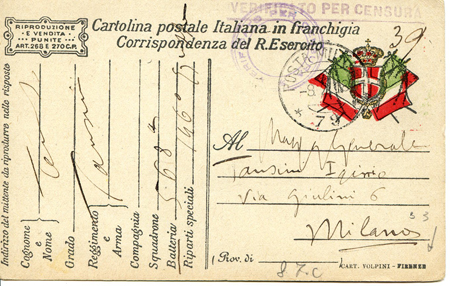 RIPRODUZIONE
E VENDITA
PUNITE
ART. 268 E 270 C.P.
Cartolina postale Italiana in franchigia
Corrispondenza del R. Esercito
VERIFICATO PER CENSURA
39
79
Al Magg. Generale
Tansini Igino
Via Giulini 6
Milano
Prov. di
CART. VOLPINI - FIRENZE
Indirizzo del mittente da riprodurre nella risposta
Cognome e Nome
Grado
Reggimento e Arma
Compagnia
Squadrone
Batteria
Riparti speciali
568